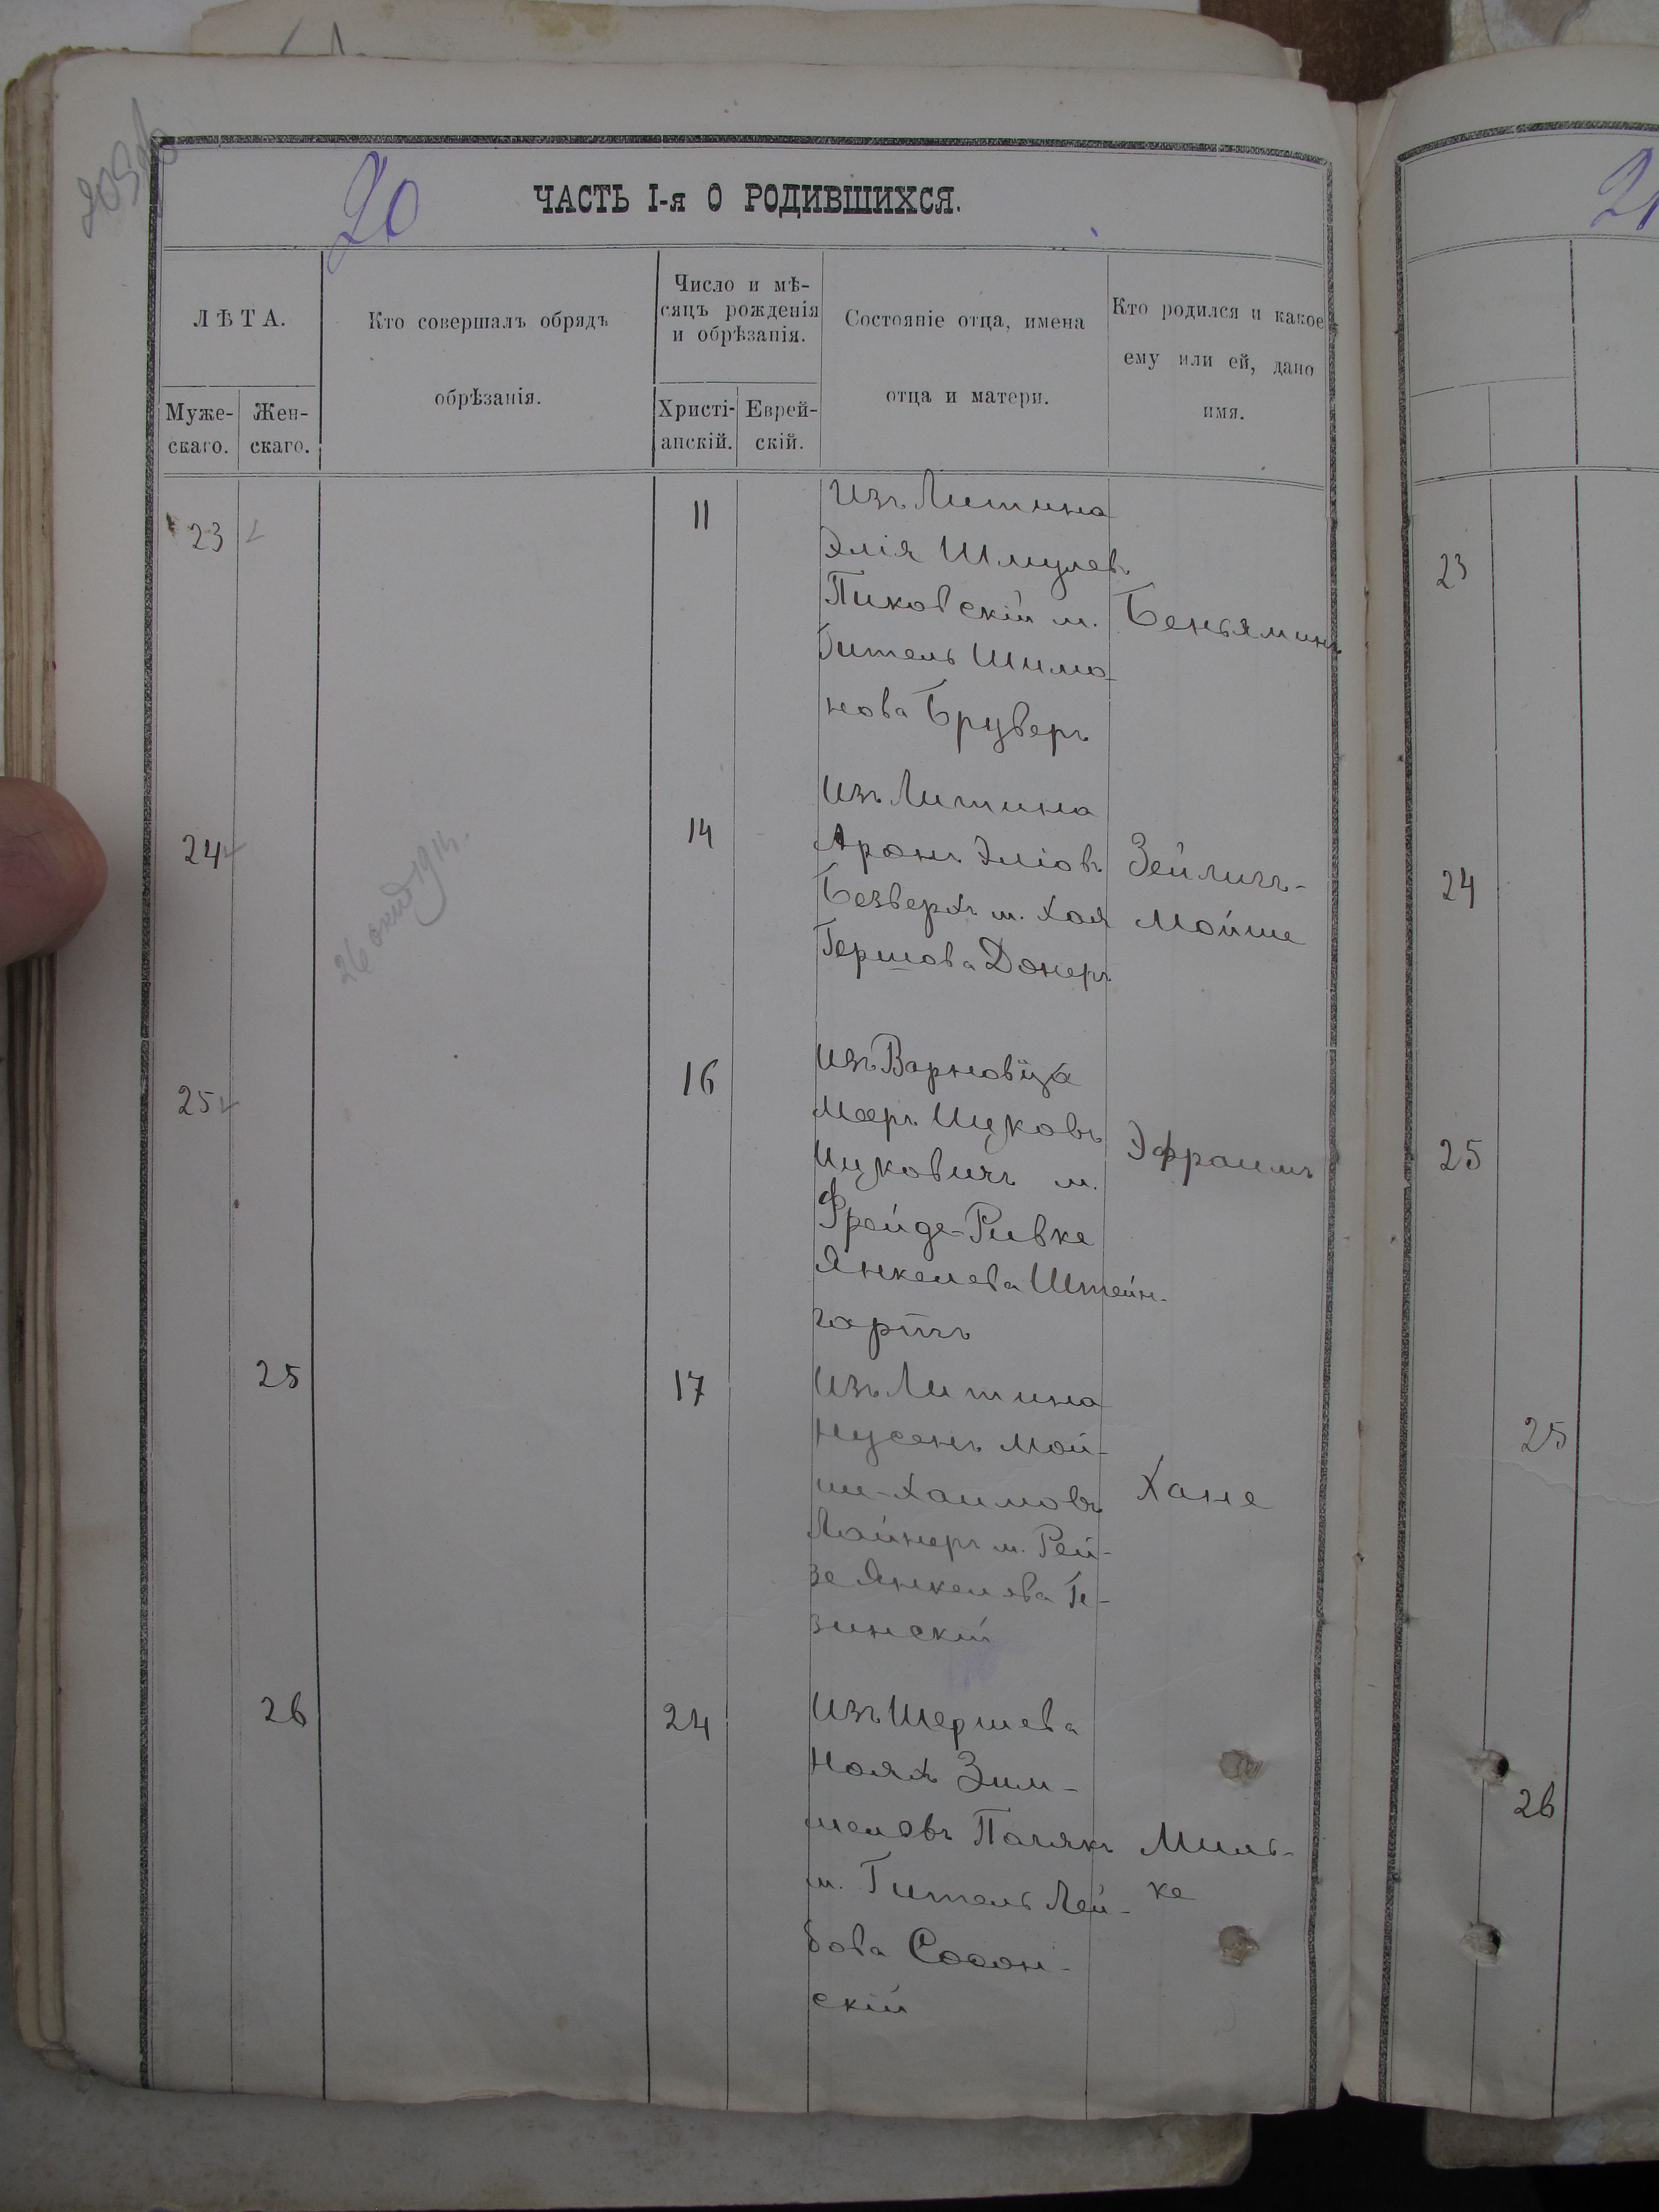 20
ЧАСТЬ I-я О РОДИВШИХСЯ.
ЛѢТА.
Муже-
скаго.
Жен-
скаго.
Кто совершалъ обрядъ
обрѣзанія.
Число и мѣ-
сяцъ рожденія
и обрѣзанія.
Христі-
анскій.
Еврей-
скій.
Состояніе отца, имена
отца и матери.
Кто родился и какое
ему или ей, дано
имя.
23
11
Изъ Литина
Элія Шмулев
Пиковскій м.
Гитель Шимо-
нова Бруверъ
Беньяминъ
24
26 1914.
14
Изъ Литина
Аронъ Эліовъ
Безверхъ м. Хая
Гершова Донеръ
Зейлигъ-
Мойше
25
16
Изъ
Меръ Ицковъ
Ицковичъ м.
Фрейде-Ривке
Янкелева Штейн-
гартъ
Эфраимъ
25
17
Изъ Литина
Нусенъ Мой-
ше-Хаимовъ
Лайнеръ м. Рей-
зе Янкелева Ге-
зинскій
Хане
26
24
Изъ Шершева
Нояхъ Зим-
меловъ
м. Гитель Лей-
бова
скій
Миль-
ке
21
23
24
25
25
26